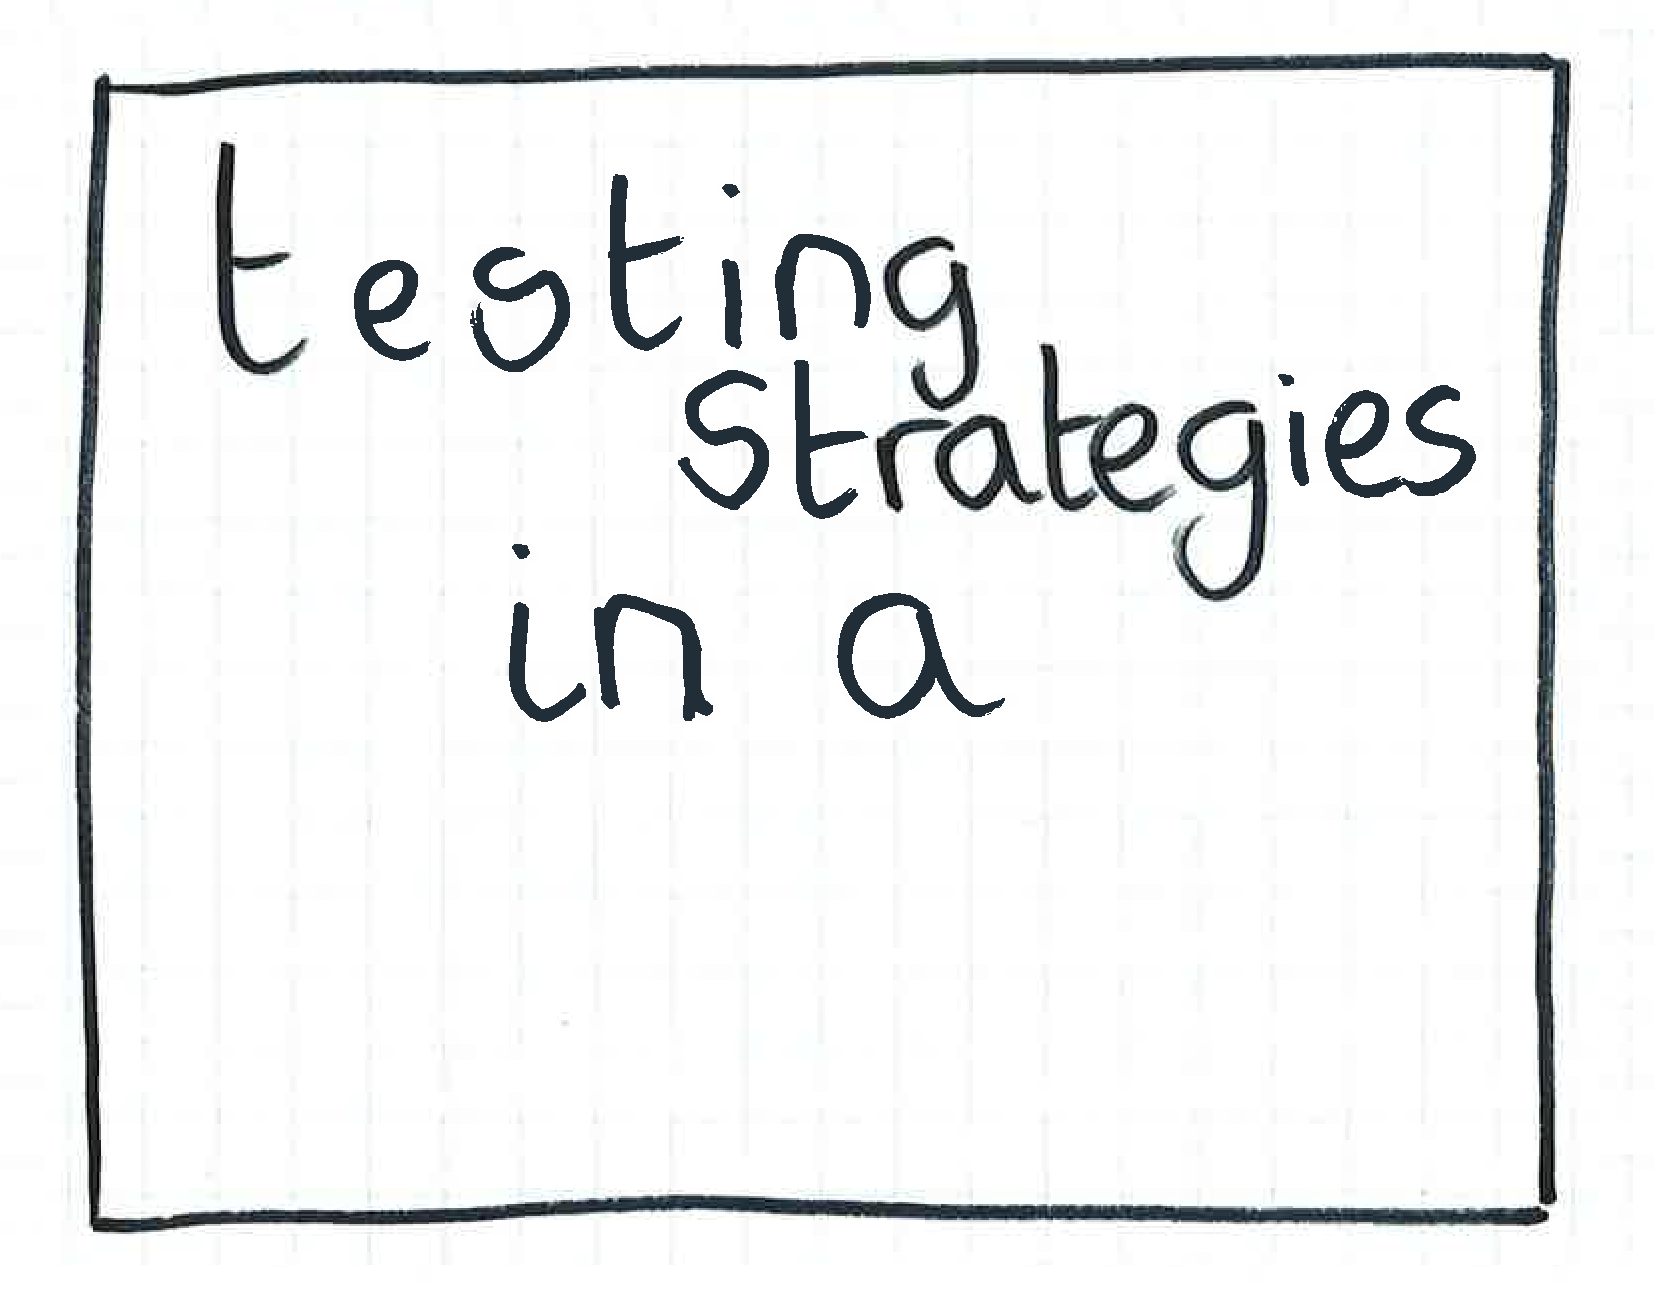 testing
strategies
in a